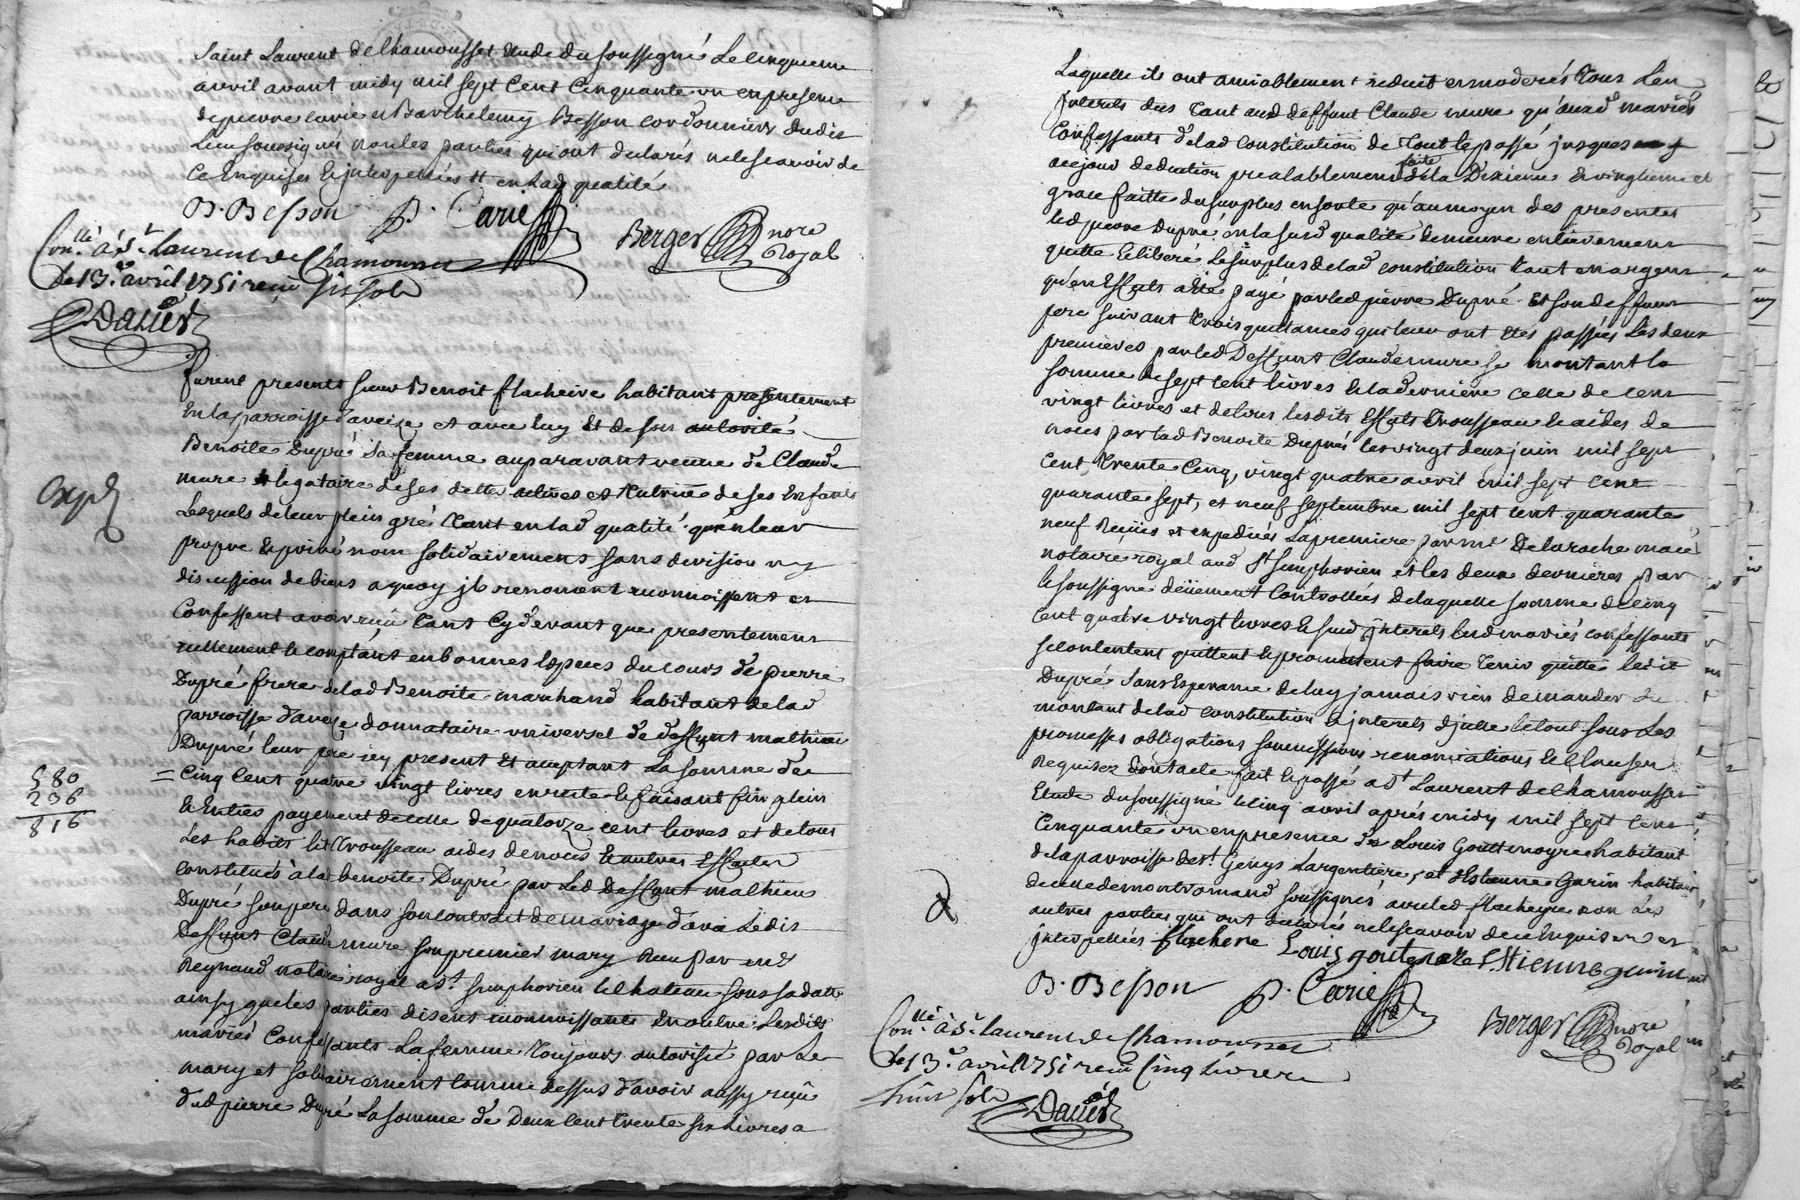 Saint Laurent de Chamousset etude du soussigné le cinquieme
avril avant midy mil sept Cent Cinquante un en presence
de pierre carie et Barthelemy Besson cordonniers dudit
Lieu soussignés non les parties qui ont declarés ne le scavoir de
Ce Enquises & jnterpellés en lad qualité
B. Besson P. Carie Berger nore Royal
Con.llé à S.t Laurent de Chamousset
le 13.e avril 1751 reçu six sols
Dalier
furent presents sieur Benoit flacheire habitant presentement
En la parroisse d'aveize et avec luy Et de son autorité
Benoite Dupré sa femme auparavant veuve de Claude
mure & legataire de ses dettes actives et Nutrice de ses Enfants
Lesquels de leur plein gré tant en lad qualité qu'en leur
propre & privé nom solidairement sans division ny
discussion de biens a quoy jls renoncent reconnoissent et
Confessent avoir reçû tant Cy devant que presentement
reellement & comptant en bonnes Espèces du cours de pierre
Dupré frere de lad Benoite marchand habitant de lad
parroisse d'aveize donnataire universel de deffunt mathieu
Dupré leur pere jcy present Et acceptant La somme de
Expd
580
236
816
= Cinq Cent quatre vingt livres en reste & faisant fin plein
& Entier payement de celle de quatorze cent livres et de tous
Les habits lit Trousseau aides de noces & autres Effects
constitués à la Benoite Dupré par Led Deffunt mathieu
Dupré son pere dans son contrait de mariage d'avec Ledit
Deffunt Claude mure son premier mary Reçu par me
Reynaud notaire royal a St. simphorien le chateau sous sa datte
ainsy que les parties disent reconnoissants En outre Lesdits
mariés Confessants La femme Toujours autorisée par Le
mary et solidairement comme dessus d'avoir aussy reçû
dud pierre Dupré La somme de Deux cent trente six Livres a
Laquelle ils ont amiablement reduit et moderés Tous Les
jnterets dus tant aud deffunt Claude mure qu'auxd mariés
Confessants de lad constitution de Tout le passé jusques
acejour deduction prealablement faite de la Dixieme & vingtieme et
grace faitte du surplus en sorte qu'au moyen des presentes
led pierre Dupré en la susd qualité Demeure entierement
quitte & liberé Le surplus de lad constitution tant en argent
qu'en Effects a été payé par led pierre Dupré Et son deffunt
pere suivant trois quittances qui leur ont Etés passées Les deux
premieres par led Deffunt Claude mure se montant la
somme de sept cent livres & la derniere celle de cent
vingt livres et de tous lesdits Effects Trousseau & aides de
noces par lad Benoite Dupré les vingt deux juin mil sept
Cent Trente Cinq, vingt quatre avril mil sept Cent
quarante sept, et neuf septembre mil sept cent quarante
neuf Reçües et expediées La premiere par me Delaroche
notaire royal aud St simphorien et les deux dernieres par
le soussigné dëüement Controllées De laquelle somme de cinq
Cent quatre vingt livres & susd jnterets lesd mariés confessants
se contentent quittent & promettent faire Tenir quitte ledit
Dupré Sans Esperance de luy jamais rien demander du
montant de lad constitution & jnterets d'jcelle le tout sous Les
promesses obligations soumissions renonciations & clauses
Requises Dont acte fait & passé a St Laurent de Chamousset
Etude du soussigné le cinq avril après midy mil sept cens
Cinquante un en presence de Louis Gouttenoyre habitant
de la parroisse de St. Genys Largentiere, et d'Estienne Garin habitant
de celle de montromand soussignés avec led flacheyre non Les
autres parties qui ont declarés ne le scavoir de ce Enquises et
jnterpellées flachere Louis goutenoire Estienne garin
B. Besson P. Carie Berger nore Royal
Con.llé à S.t Laurent de Chamousset
le 13.e avril 1751 reçu Cinq livres
huit sols
Dalier